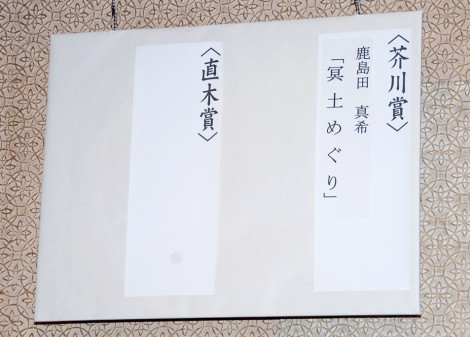 〈芥川賞〉
鹿島田 真希
「冥土めぐり」
〈直木賞〉